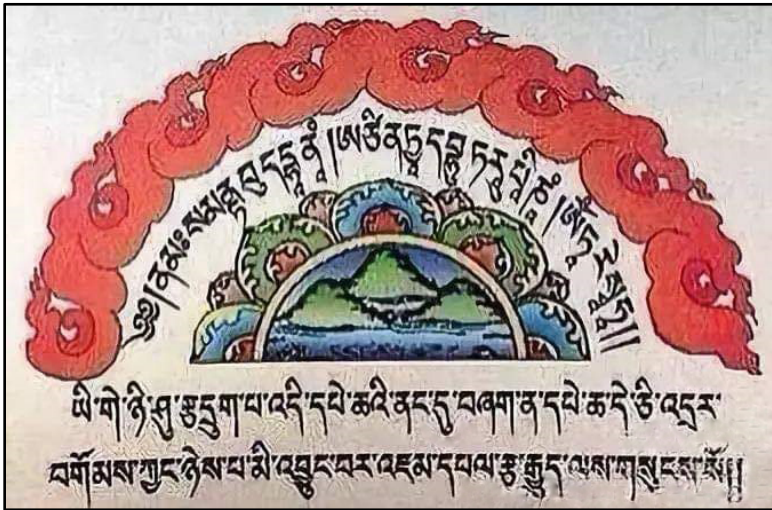 ༄༅།ནམཿསམནྟབུདདྷཱནཱཾ།ཨཙིནཏྱདབྷུཏརཱུཔིཎཱཾ།ཨོཾཏཱརེསྭཱཧཱ།།
ཡི་གེ་ཉི་ཤུ་རྩ་དྲུག་པ་འདི་དཔེ་ཆའི་ནང་དུ་བཞག་ན་དཔེ་ཆ་དེ་ཅི་འདྲར་
བགོམས་ཀྱང་ཉེས་པ་མི་འབྱུང་བར་འཇམ་དཔལ་རྩ་རྒྱུད་ལས་གསུངས་སོ།།